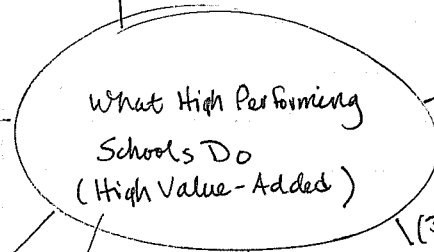 What High Performing
Schools Do
(High Value-Added)
(3